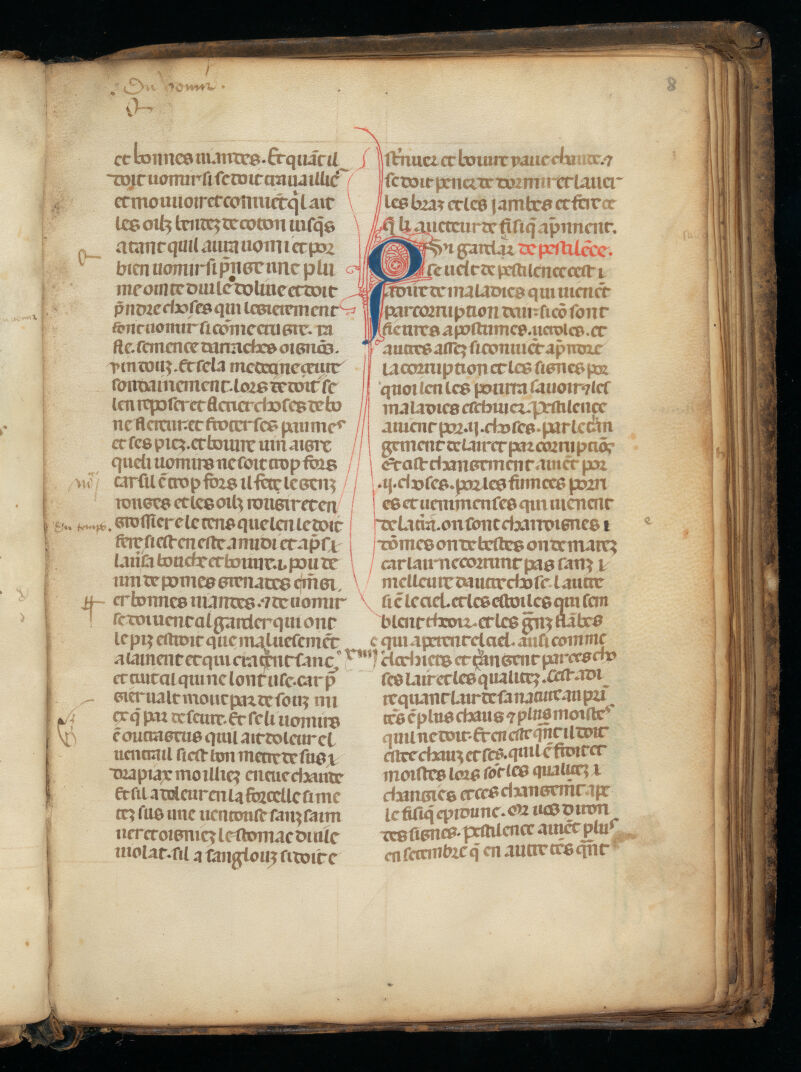 Du vomir.
8
et bonnes uiandes. Et quãt il
doit uomir si se doit trauaillier
et mouuoir et conuiẽt q̃l ait
les oilz bendez de coton iusq̃s
atant quil aura uomi et por
bien uomir si pñgne une plu
me ointe duile doliue et doit
pñdre choses qui legierement
font uomir si cõme erugre. ra
fle. semence darraches oignõs.
⁊ uin douz. Et se la medecine oeure
soudainement. lors de doit se
len reposer et flerier choses de bo
ne flereur. et froter ses paumes
et ses piez. et boiure uin aigre
que li uomirs ne soit trop fors
car sil ẽ trop fors il fet le genz
rouges et les oilz rougir et en
grossier e le tens que len le doit
fere si est en este a midi et ap̃s i
laura bouche et boiure .i. pou de
uin de pomes grenates
et bonnes uiandes. ⁊ de uomir
se doiuent al garder qui ont
le piz estroit que maluesemẽt
alainent et qui crachẽt sanc
et tuit cil qui ne lont use. car p̃
gier ualt mout par desouz mi
ex q̃ par deseure. Et se li uomirs
ẽ outrageus quil ait doleur el
uentrail si est bon metre desus .i.
drapiax moilliez en eue chaude
Et sil a doleur en la forcelle si me
tez sus une uentouse sanz saim
ner et oigniez lestomac duile
uiolat. sil a sanglouz si doit e
sternuer et boiure yaue chaude. ⁊
se doit pener de dormir et lauer
les braz et les jambes et fere ce
q̃ li aucteur de fisiq̃ ap̃nnent.
Sen garder de pestilẽce.
se uelt de pestilence cest .i.
de maladies qui uienẽt
par corruption dair si cõ sont
fieures apostumes. ueroles. et
autres assez si conuiẽt ap̃ndre
la corruption et les signes por
quoi len les pourra sauoir ⁊ les
maladies eschiuer. Pestilence
auient por .ij. choses. par le chan
gement de lair et par corruptiõ
Et cist changement auiẽt por
.ij. choses. por les fumees porri
es et uenimenses qui uienent
de la t̃ra. ou sont charroignes
dõmes ou de bestes ou de marez
car lair ne corrunt pas sanz
melleure dautre chose. lautre
si ẽ le ciel. et les estoiles qui sem
blent cheoir. et les grñz flãbes
qui aperent el ciel. ausi comme
xiiij
clochiers et changent par ces cho
ses lair et les qualitez. Cest adi
re quant lair de sa nature au pri
tẽs ẽ plus chaus ⁊ plus moistes
quil ne doit. Et en este qñt il doit
estre chauz et ses. quil ẽ froit et
moistes lors sõt les qualitez
changies et ces changemẽt ape
le fisiq̃ epidime. Or uos diron
des signes. pestilence auiẽt plus
en setembre q̃ en autre tẽs qñt